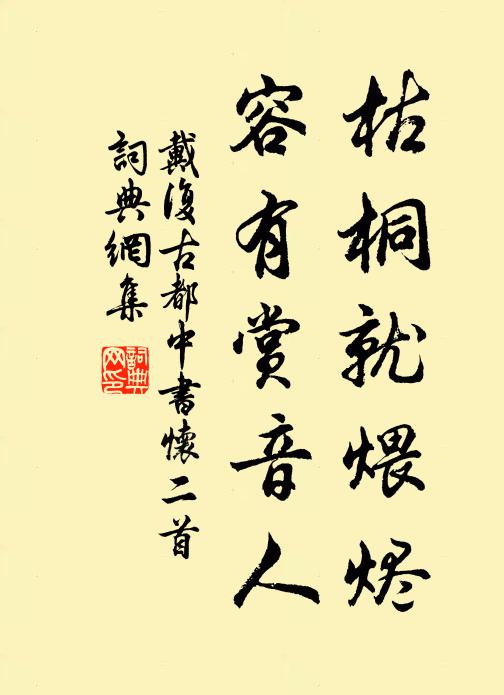 枯桐就煨烬
容有赏音人
戴復古都中書懷二首
詞典網集
詞典网印